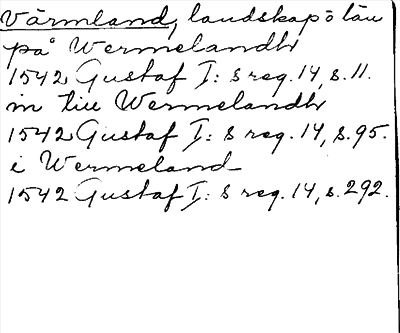 Värmland, landskap o län
på Wermelandh
1542 Gustaf I:s reg. 14, s. 11.
in till Wermelandh
1542 Gustaf I:s reg. 14, s. 95.
i Wermeland
1542 Gustaf I:s reg. 14, s. 292.